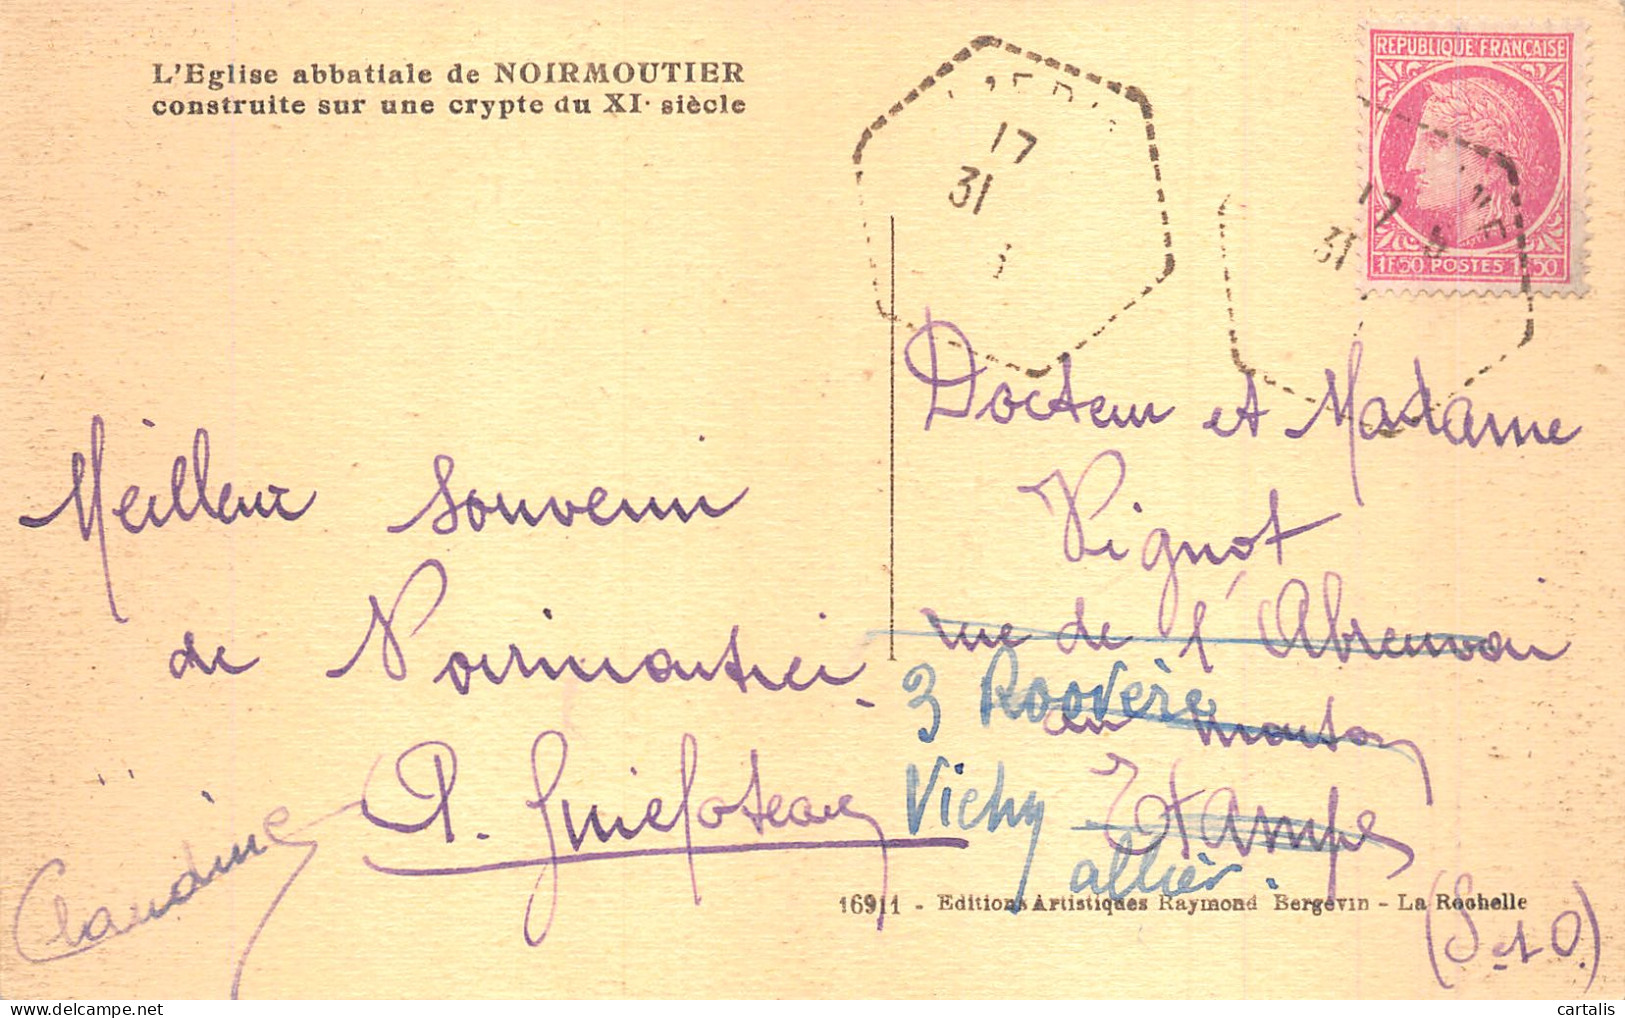 L'Eglise abbatiale de NOIRMOUTIER
construite sur une crypte du XI· siècle
REPUBLIQUE FRANÇAISE
1F50 POSTES 1F50
17
31
17
31
Meilleur souvenir
de Noirmoutier.
Claudine
Docteur et Madame
Vignot
rue de l'Abreuvoir
au mouton
Etampes
(S et O)
3 Roovère
Vichy
allier.
16911 - Editions Artistiques Raymond Bergevin - La Rochelle
cartalis